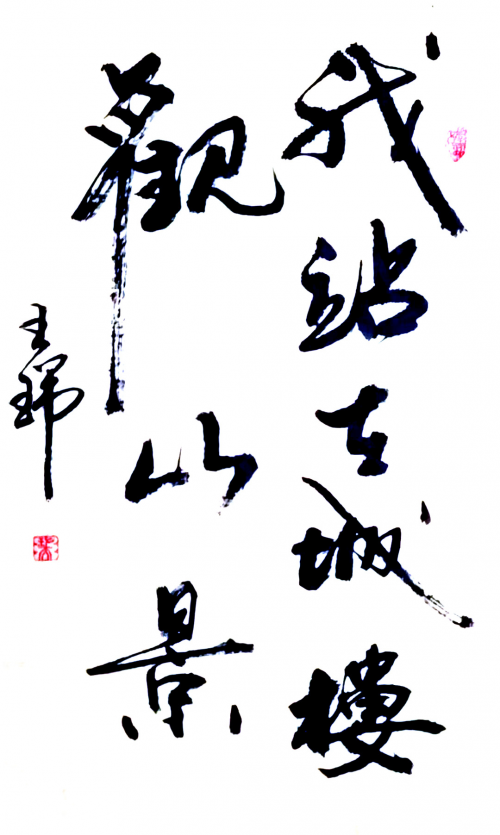 我站在城樓
觀山景
王瑞